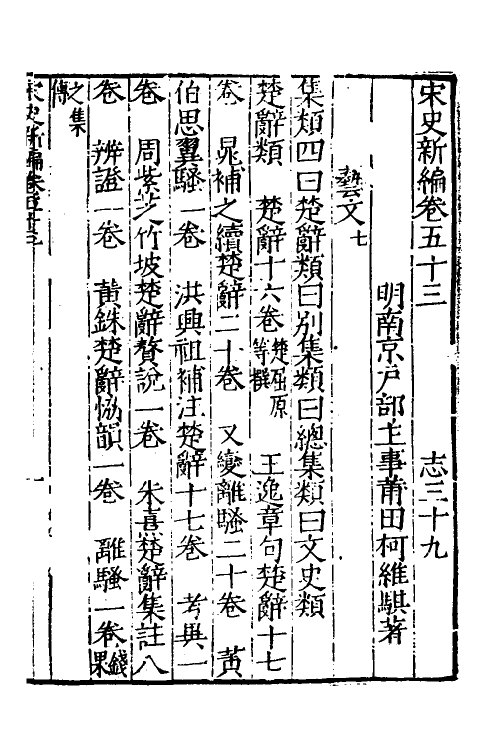 宋史新編卷五十三　志三十九
明南京戶部主事莆田柯維騏著
藝文七
集類四曰楚辭類曰別集類曰總集類曰文史類
楚辭類　楚辭十六卷楚屈原等撰　王逸章句楚辭十七
卷　晁補之續楚辭二十卷　又變離騷二十卷　黃
伯思翼騷一卷　洪興祖補注楚辭十七卷　考異一
卷　周紫芝竹坡楚辭贅說一卷　朱熹楚辭集註八
卷　辨證一卷　黃銖楚辭恊韻一卷　離騷一卷錢杲
之集傳
宋史新編卷五十三　一